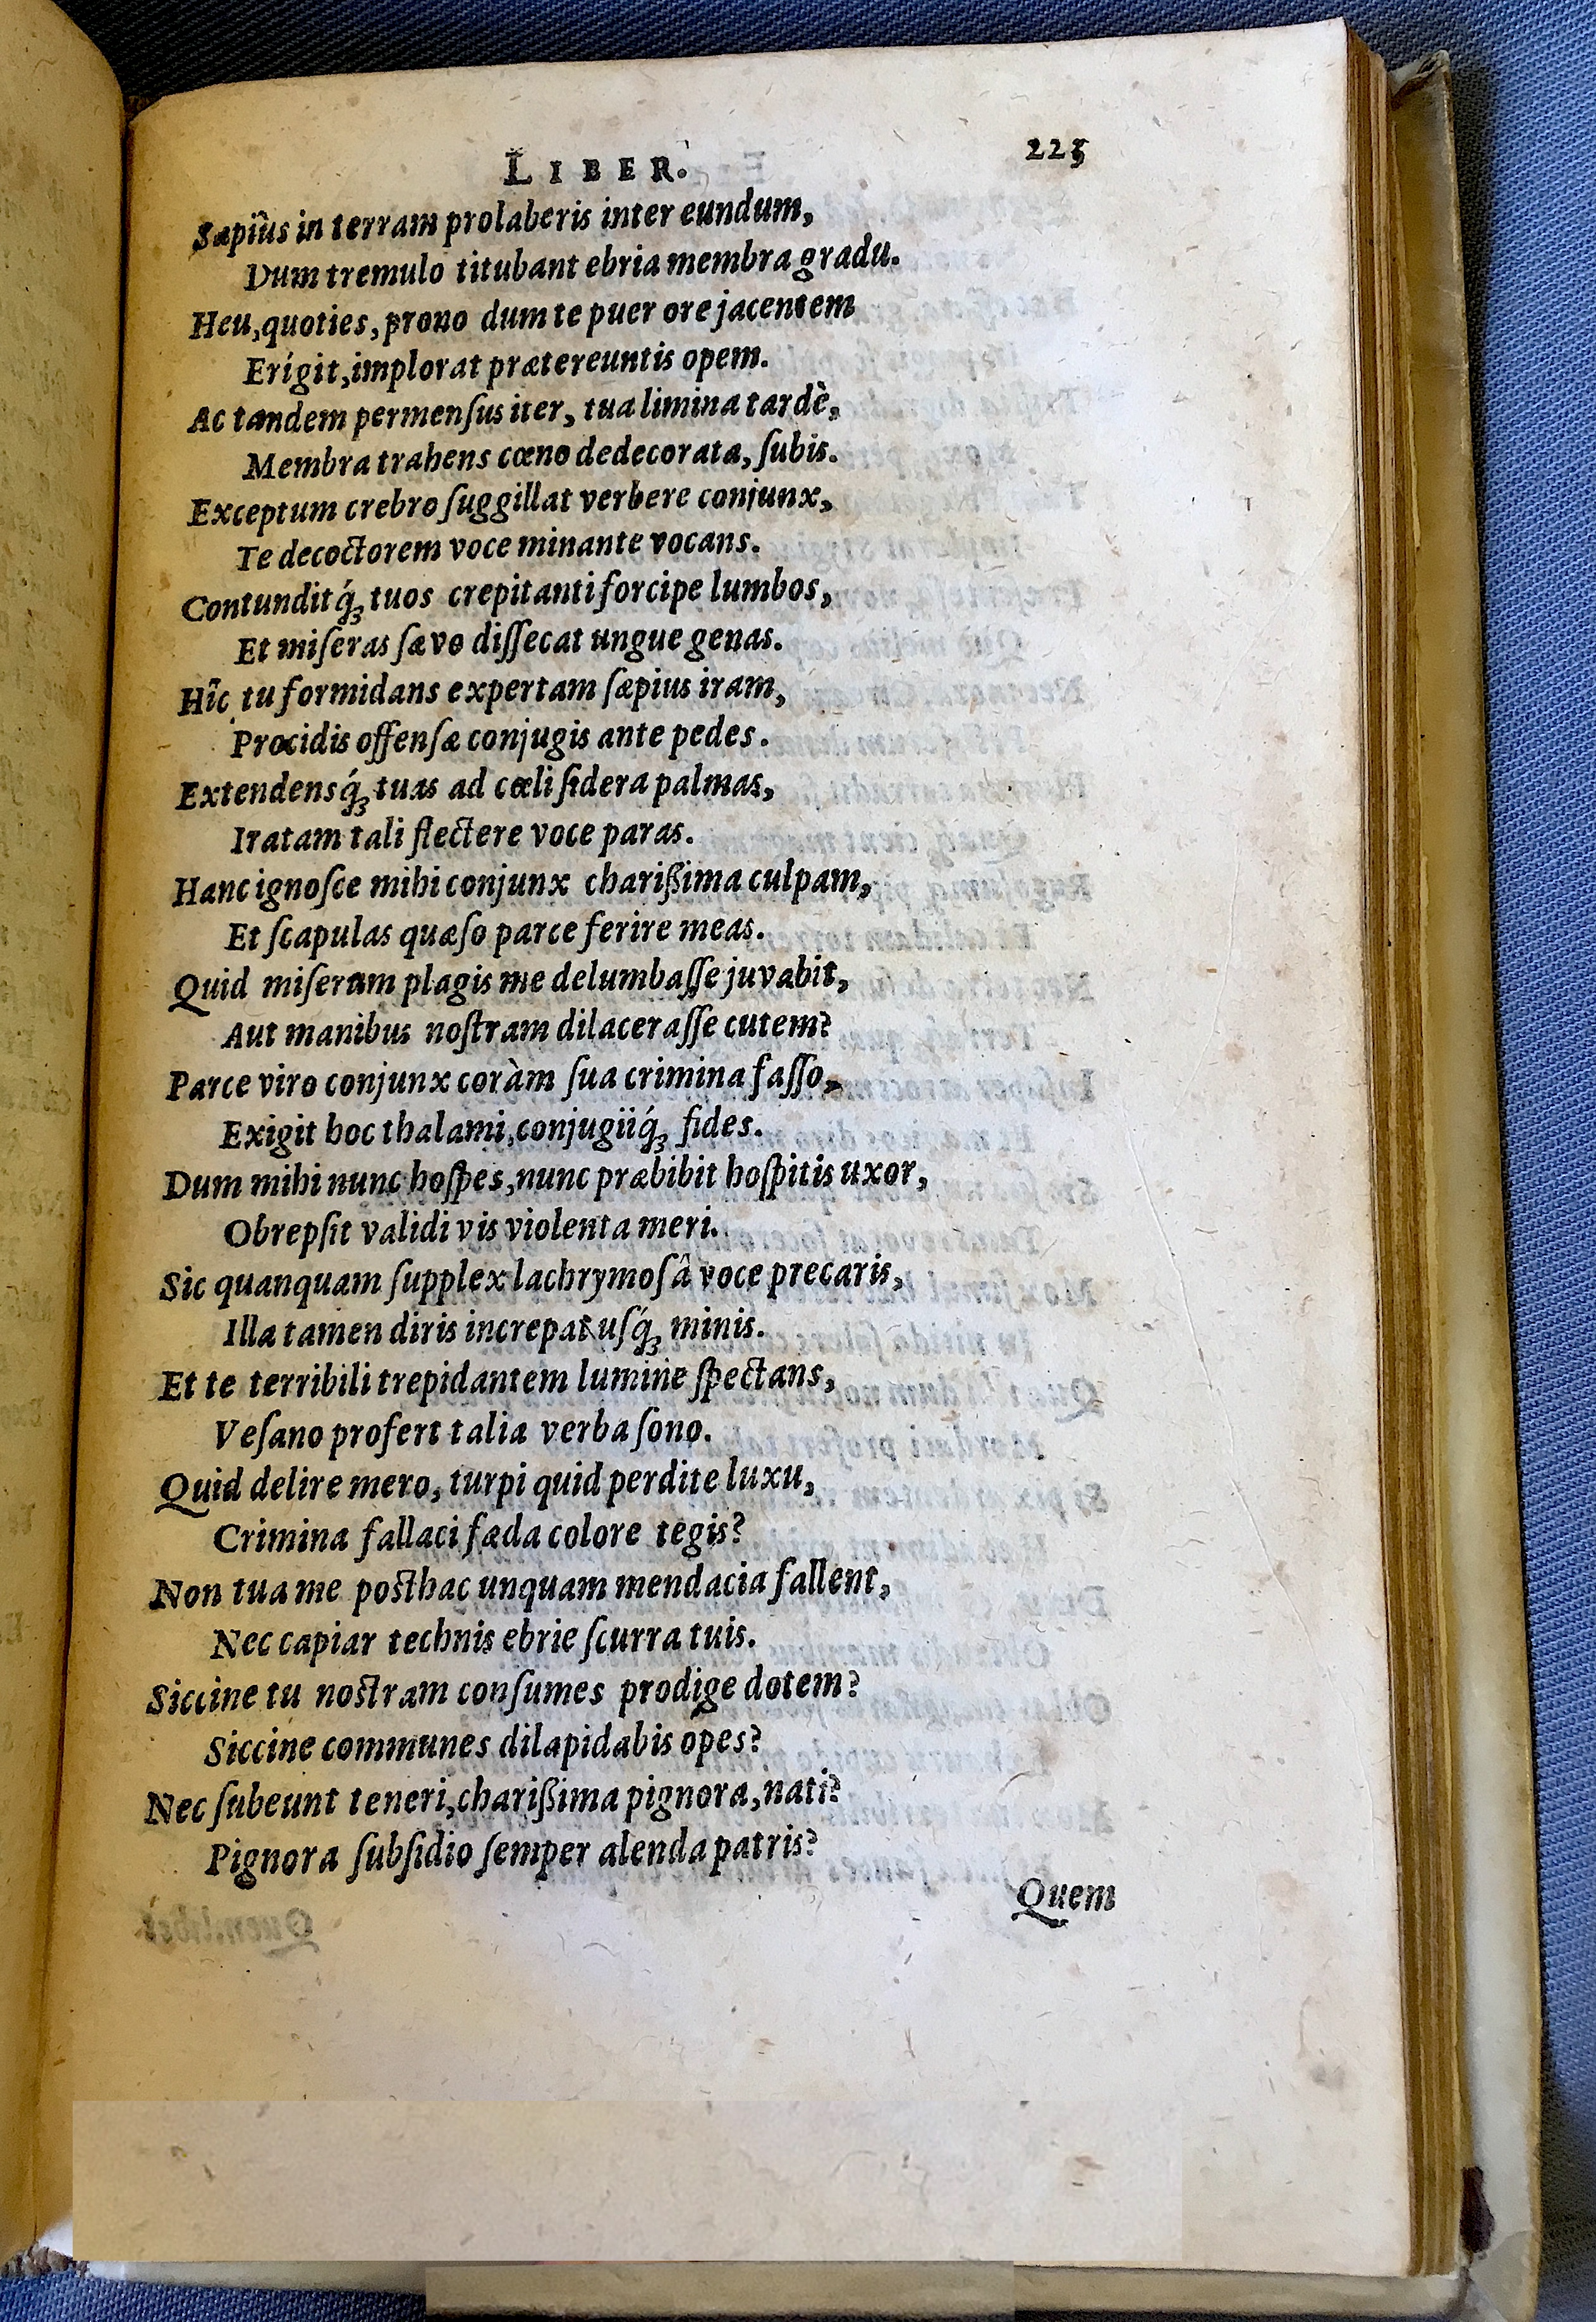 LIBER. 223
Sæpiûs in terram prolaberis inter eundum,
Dum tremulo titubant ebria membra gradu.
Heu, quoties, prono dum te puer ore jacentem
Erigit, implorat prætereuntis opem.
Ac tandem permenſus iter, tua limina tardè,
Membra trahens cœno dedecorata, ſubis.
Exceptum crebro ſuggillat verbere conjunx,
Te decoctorem voce minante vocans.
Contunditq́ꝫ tuos crepitanti forcipe lumbos,
Et miſeras ſævo diſſecat ungue genas.
Hîc tu formidans expertam ſæpius iram,
Procidis offenſæ conjugis ante pedes.
Extendensq́ꝫ tuas ad cœli ſidera palmas,
Iratam tali flectere voce paras.
Hanc ignoſce mihi conjunx charißima culpam,
Et ſcapulas quæſo parce ferire meas.
Quid miſerum plagis me delumbaſſe juvabit,
Aut manibus noſtram dilaceraſſe cutem?
Parce viro conjunx coràm ſua crimina faſſo,
Exigit hoc thalami, conjugiiq́ꝫ fides.
Dum mihi nunc hoſpes, nunc præbibit hoſpitis uxor,
Obrepſit validi vis violenta meri.
Sic quanquam ſupplex lachrymoſâ voce precaris,
Illa tamen diris increpat uſq́ꝫ minis.
Et te terribili trepidantem lumine ſpectans,
Veſano profert talia verba ſono.
Quid delire mero, turpi quid perdite luxu,
Crimina fallaci fœda colore tegis?
Non tua me poſthac unquam mendacia fallent,
Nec capiar technis ebrie ſcurra tuis.
Siccine tu noſtram conſumes prodige dotem?
Siccine communes dilapidabis opes?
Nec ſubeunt teneri, charißima pignora, nati?
Pignora ſubſidio ſemper alenda patris?
Quem